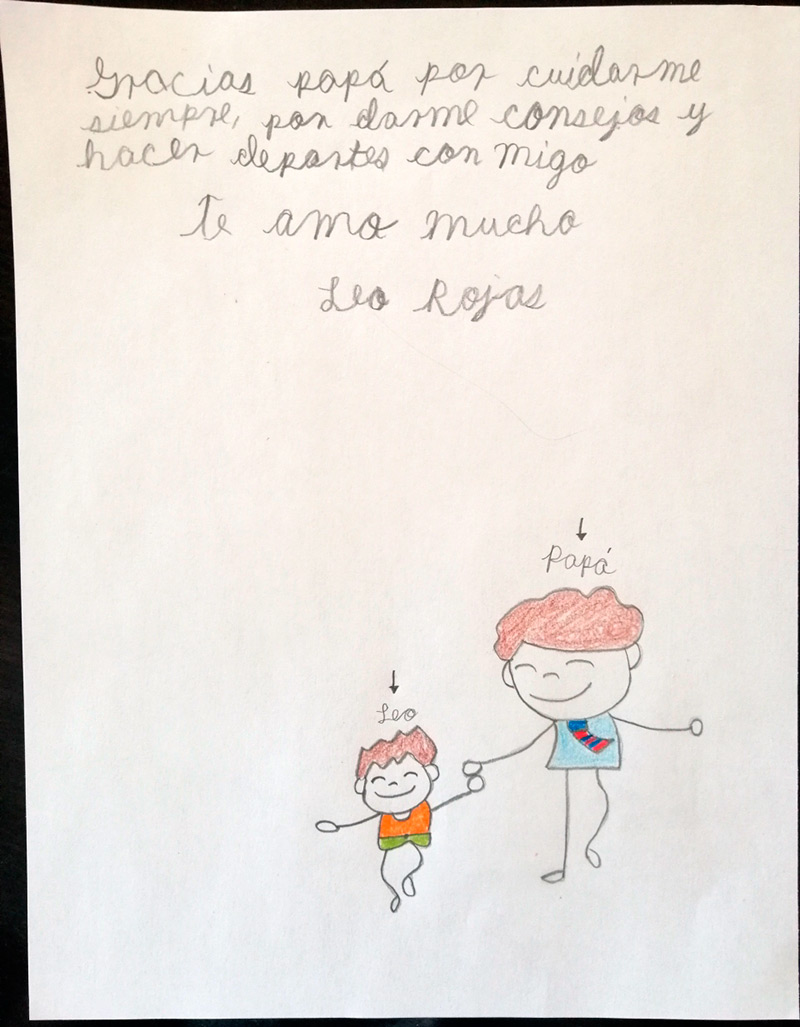 Gracias papá por cuidarme
siempre, por darme consejos y
hacer deportes con migo
Te amo mucho
Leo Rojas
Papá
Leo